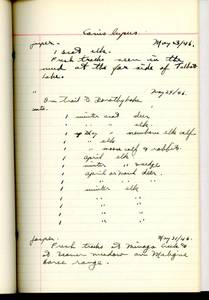 Canis lupus
Jasper. May 23/46.
1 scat elk.
Fresh tracks seen in the
mud at the far side of Talbot
Lake.
May 24/46.
On trail to Dorothy Lake
scats.
1 winter scat deer
1 " " elk
1 " May " newborn elk calf.
1 " elk
1 " " nose elf & rabbit.
1 april elk
1 " winter " wedge
1 april or March deer.
1 " " "
1 " winter elk
1 " " "
1 " " "
1 " " "
Jasper. May 30/46.
Fresh tracks at
at Beaver meadow on Maligne
range.